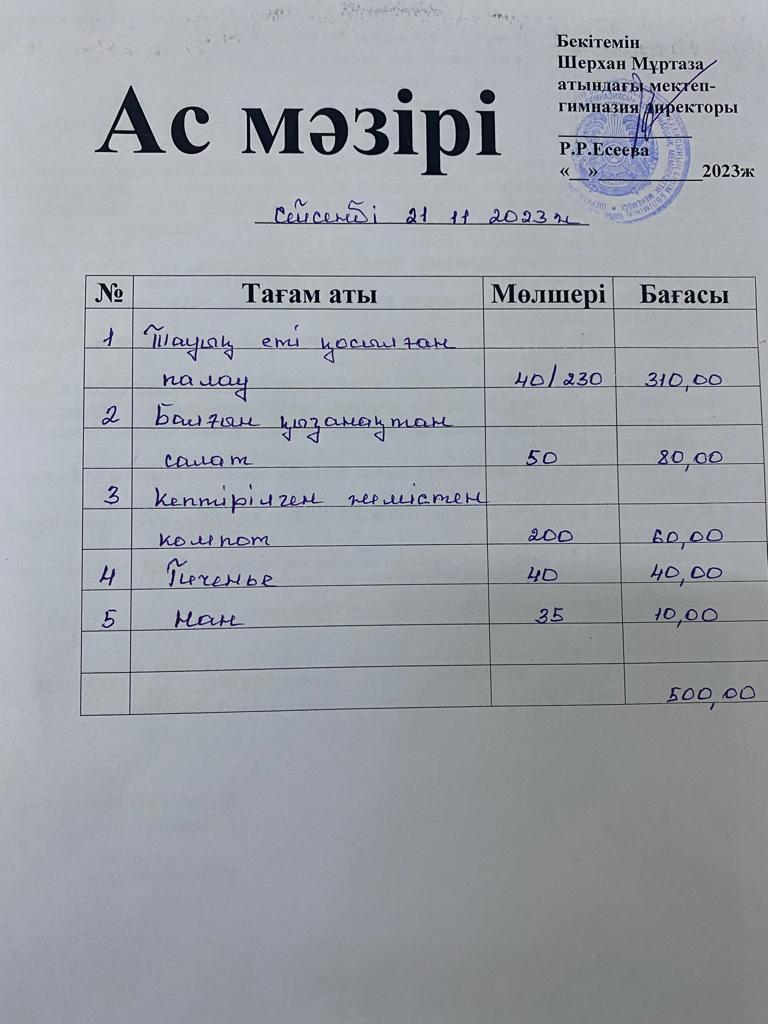 Бекітемін
Шерхан Мұртаза
атындағы мектеп-
гимназия директоры
Р.Р.Есеева
«__»____________2023ж
Ас мәзірі
Сейсенбі 21 11 2023ж
№ Тағам аты Мөлшері Бағасы
1 Тауық еті қосылған
палау 40/230 310,00
2 Балғын қызанақтан
салат 50 80,00
3 Кептірілген жемістен
компот 200 60,00
4 Печенье 40 40,00
5 Нан 35 10,00
500,00